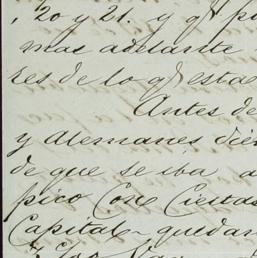 , 20 y 21. y qe pu
mas adelante
res de lo qe esta
Antes de
y Alemanes dié
de que se iba a
pico Cone Ciesta
Capital - quedan